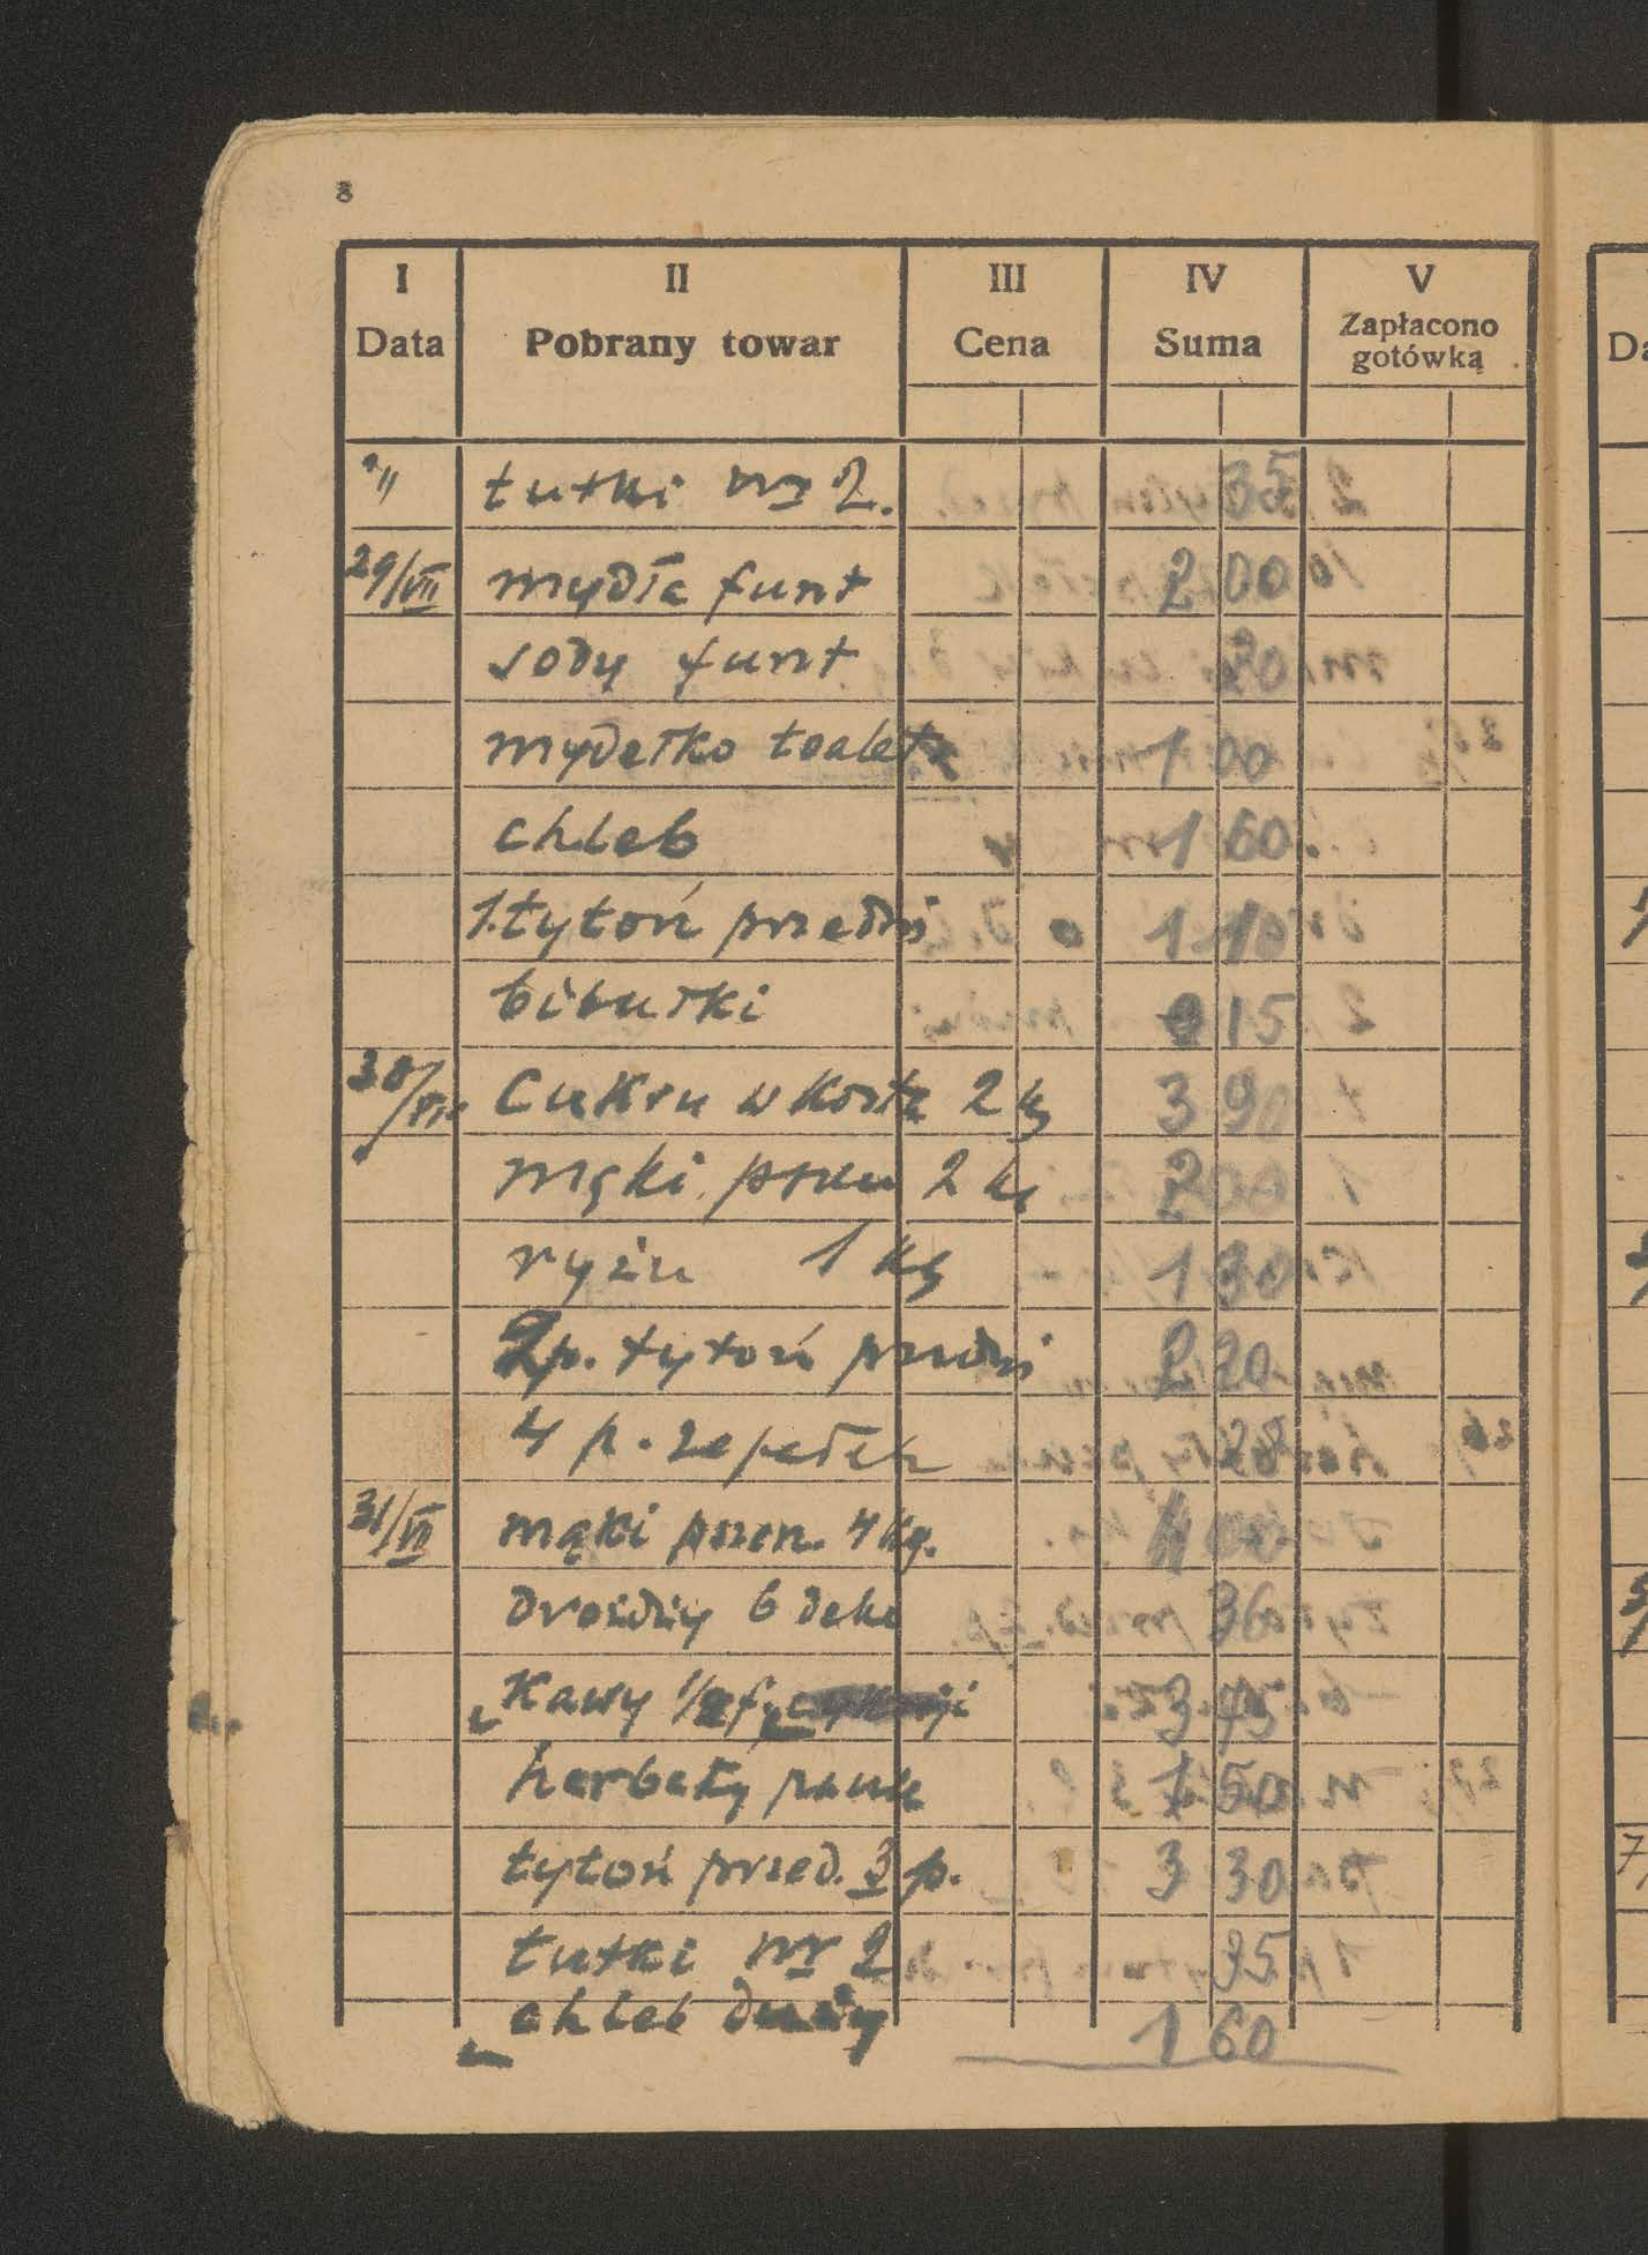 8
I II III IV V
Data Pobrany towar Cena Suma Zapłacono gotówką
" tutki nr 2. 35
29/VII mydła funt 2 00
sody funt 20
mydełko toalet 1 00
chleb 1 60
1. tytoń przedni 1 10
bibułki 0 15
30/VII Cukru w kostk 2 kg 3 90
mąki pszen 2 kg 2 00
ryżu 1 kg 1 30
2p. tytoń przedni 2 20
4 p. zapałek 28
31/VII mąki pszen. 4 kg. 4 00
drożdży 6 deka 36
Kawy 1/2 f. 3 45
herbaty 1 50
tytoń przed. 3 p. 3 30
tutki nr 2 35
chleb duży 1 60